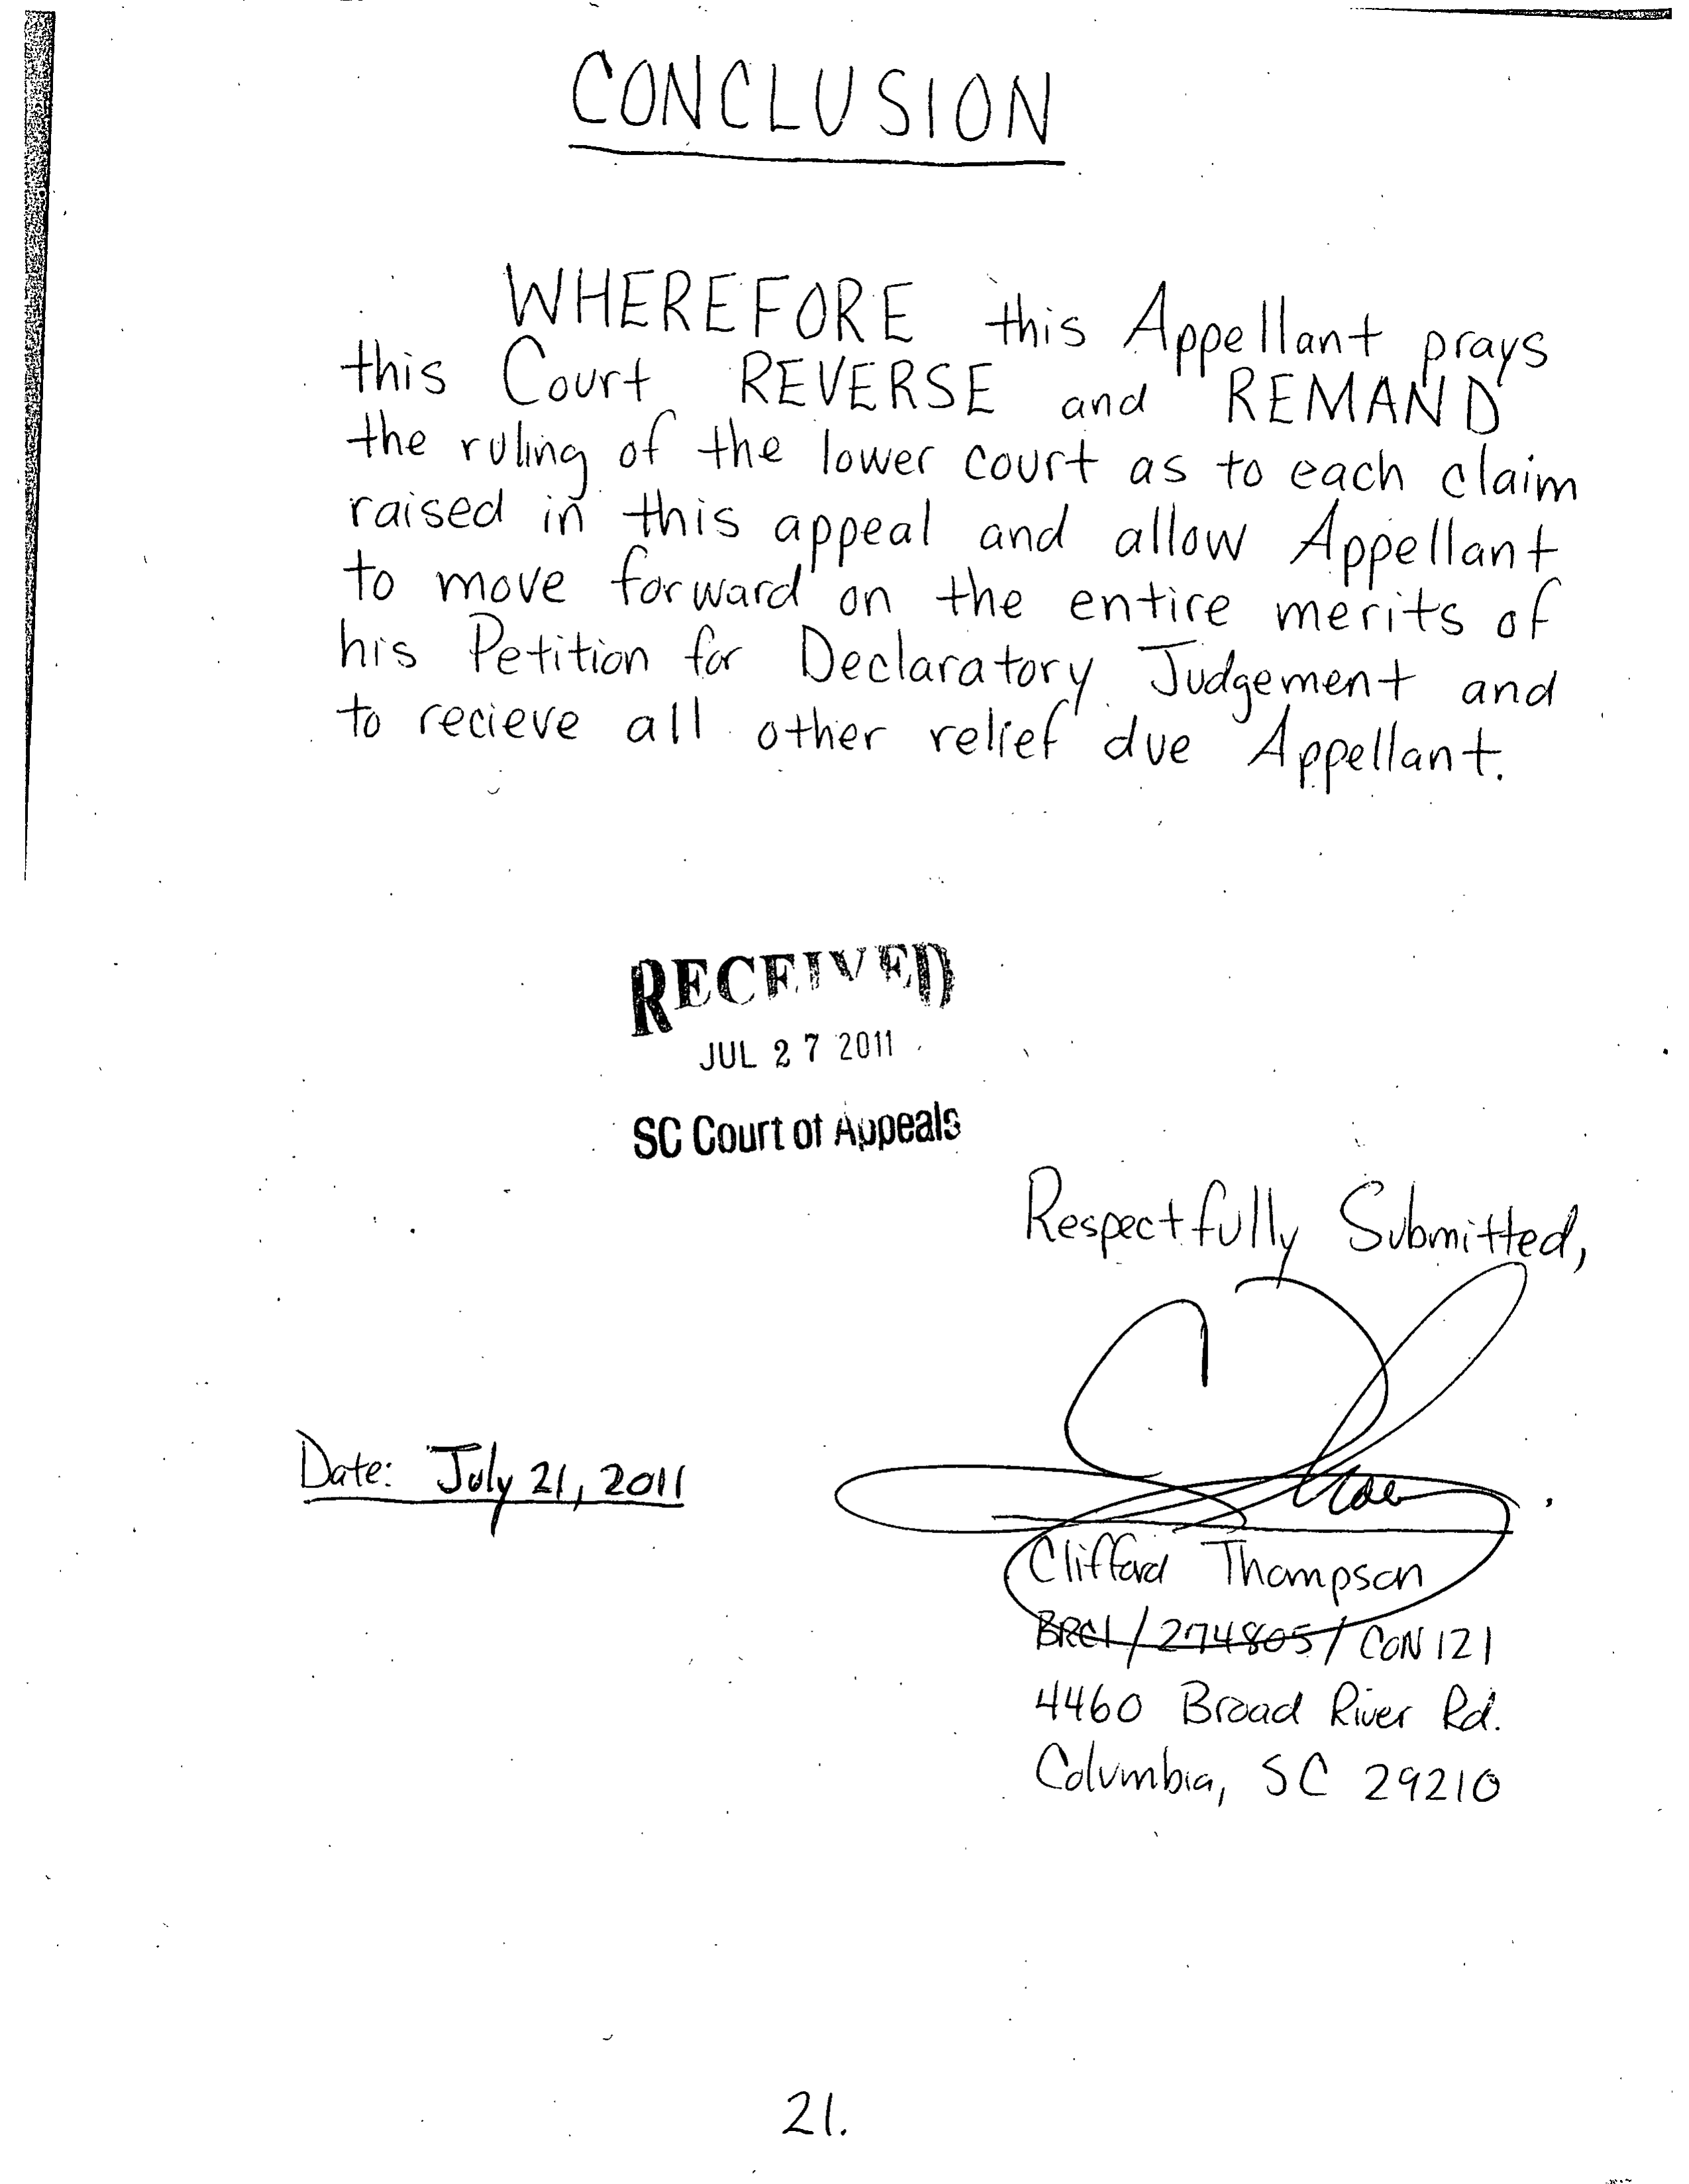 CONCLUSION
WHEREFORE this Appellant prays
this Court REVERSE and REMAND
the ruling of the lower court as to each claim
raised in this appeal and allow Appellant
to move forward on the entire merits of
his Petition for Declaratory Judgement and
to recieve all other relief due Appellant.
RECEIVED
JUL 27 2011
SC Court of Appeals
Respectfully Submitted,
Date: July 21, 2011
Clifford Thompson
BRCI/274805/CON 121
4460 Broad River Rd.
Columbia, SC 29210
21.